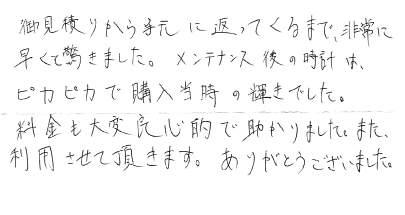 御見積りから手元に返ってくるまで、非常に
早くて驚きました。メンテナンス後の時計は、
ピカピカで購入当時の輝きでした。
料金も大変良心的で助かりました。また、
利用させて頂きます。ありがとうございました。